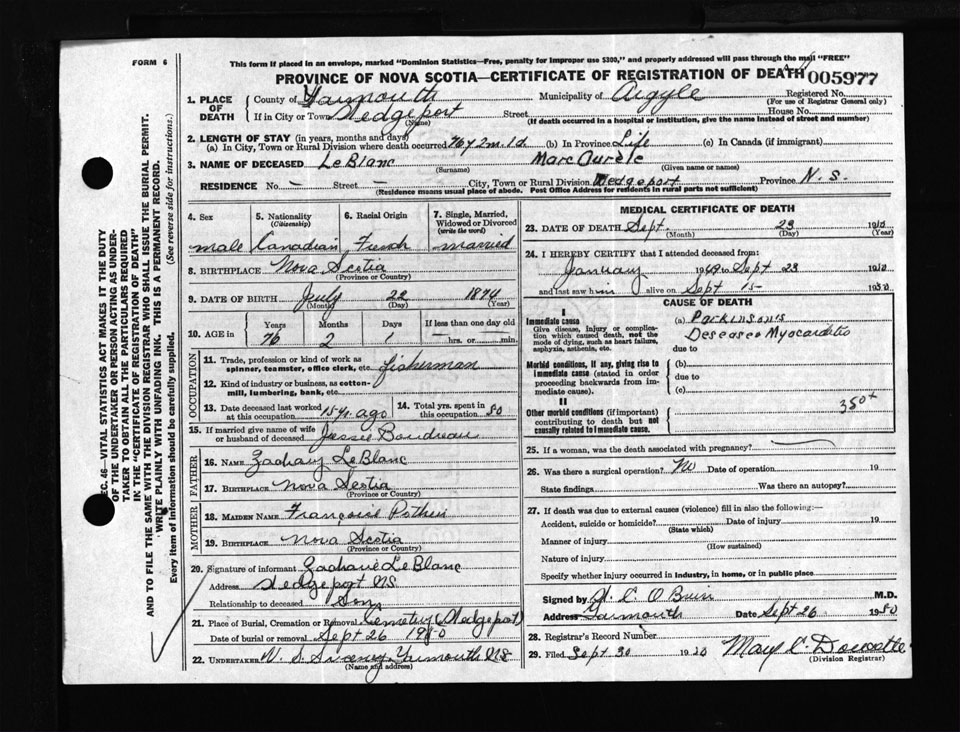 FORM 6
This form if placed in an envelope, marked "Dominion Statistics—Free, penalty for improper use $300," and properly addressed will pass through the mail "FREE"
PROVINCE OF NOVA SCOTIA—CERTIFICATE OF REGISTRATION OF DEATH 005977
1. PLACE OF DEATH
County of Yarmouth Municipality of Argyle Registered No.
(For use of Registrar General only)
If in City or Town Wedgeport Street House No.
(Name) (If death occurred in a hospital or institution, give the name instead of street and number)
2. LENGTH OF STAY (in years, months and days)
(a) In City, Town or Rural Division where death occurred 76y 2m. 1d. (b) In Province Life (c) In Canada (if immigrant)
3. NAME OF DECEASED LeBlanc Marc Aurele
(Surname) (Given name or names)
RESIDENCE No. — Street — City, Town or Rural Division Wedgeport Province N.S.
(Residence means usual place of abode. Post Office Address for residents in rural parts not sufficient)
4. Sex 5. Nationality (Citizenship) 6. Racial Origin 7. Single, Married, Widowed or Divorced (write the word)
male Canadian French married
8. BIRTHPLACE Nova Scotia
(Province or Country)
9. DATE OF BIRTH July 22 1874
(Month) (Day) (Year)
10. AGE in Years Months Days If less than one day old
76 2 1 — hrs. or min.
OCCUPATION
11. Trade, profession or kind of work as spinner, teamster, office clerk, etc. fisherman
12. Kind of industry or business, as cotton-mill, lumbering, bank, etc.
13. Date deceased last worked at this occupation 15 yr. ago 14. Total yrs. spent in this occupation 50
15. If married give name of wife or husband of deceased Jessie Boudreau
FATHER
16. NAME Zachary LeBlanc
17. BIRTHPLACE Nova Scotia
(Province or Country)
MOTHER
18. MAIDEN NAME Françoise Pothier
19. BIRTHPLACE Nova Scotia
(Province or Country)
20. Signature of informant Zacharie LeBlanc
Address Wedgeport NS
Relationship to deceased Son
21. Place of Burial, Cremation or Removal Cemetery (Wedgeport)
Date of burial or removal Sept 26 1950
22. UNDERTAKER V. S. Sweeny, Yarmouth NS
(Name and address)
MEDICAL CERTIFICATE OF DEATH
23. DATE OF DEATH Sept. 23 1950
(Month) (Day) (Year)
24. I HEREBY CERTIFY that I attended deceased from:
January 1949 to Sept 23 1950
and last saw him alive on Sept 15 1950
CAUSE OF DEATH
I
Immediate cause
Give disease, injury or complication which caused death, not the mode of dying, such as heart failure, asphyxia, asthenia, etc.
(a) Parkinson's
Desease Myocarditis
due to
Morbid conditions, if any, giving rise to immediate cause (stated in order proceeding backwards from immediate cause).
(b)
due to
(c)
II
Other morbid conditions (if important) contributing to death but not causally related to immediate cause.
350+
25. If a woman, was the death associated with pregnancy?
26. Was there a surgical operation? No Date of operation 19
State findings Was there an autopsy?
27. If death was due to external causes (violence) fill in also the following:—
Accident, suicide or homicide? Date of injury 19
(State which)
Manner of injury
(How sustained)
Nature of injury
Specify whether injury occurred in industry, in home, or in public place
Signed by M.D.
Address Yarmouth Date Sept 26 1950
28. Registrar's Record Number
29. Filed Sept 30 1950 Mary C. Doucette
(Division Registrar)
SEC. 46—VITAL STATISTICS ACT MAKES IT THE DUTY
OF THE UNDERTAKER OR PERSON ACTING AS UNDERTAKER
TO OBTAIN ALL THE PARTICULARS REQUIRED
IN THE "CERTIFICATE OF REGISTRATION OF DEATH" AND
TO FILE THE SAME WITH THE DIVISION REGISTRAR WHO SHALL ISSUE THE BURIAL PERMIT.
WRITE PLAINLY WITH UNFADING INK. THIS IS A PERMANENT RECORD.
Every item of information should be carefully supplied. (See reverse side for instructions.)